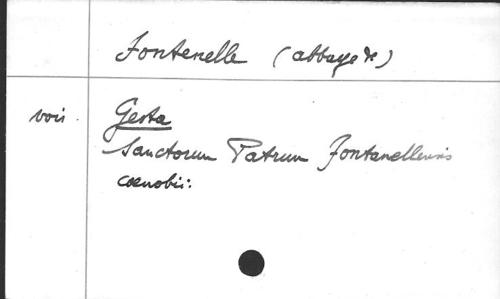 Fontenelle (abbaye de)
voir Gesta
Sanctorum Patrum Fontanellensis
coenobii: